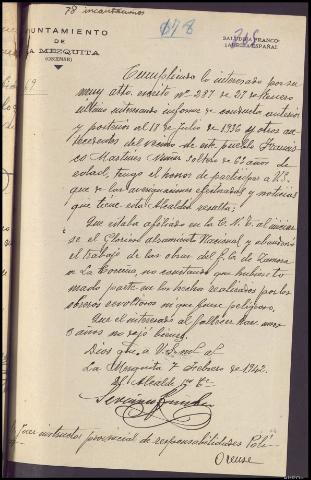 78 incautaciones
678
AYUNTAMIENTO
DE
LA MEZQUITA
(ORENSE)
SALUDO A FRANCO:
¡ARRIBA ESPAÑA!
Cumpliendo lo interesado por su
muy atto. escrito nº 287 de 27 de Enero
último interesando informe de conducta anterior
y posterior al 18 de Julio de 1936 y otros an-
tecedentes del vecino de este pueblo Francis-
co Martínez soltero de 62 años de
edad, tengo el honor de participar a V.S.
que de las averiguaciones efectuadas y noticias
que tiene esta Alcaldía resulta:
Que estaba afiliado en la C. N. T. al iniciar-
se el Glorioso Alzamiento Nacional y abandonó
el trabajo de las obras del f.c. de Zamora
a La Coruña, no constando que hubiese to-
mado parte en los hechos realizados por los
obreros revoltosos ni que fuese peligroso.
Que el interesado al fallecer hace unos
3 años no dejó bienes.
Dios gue. a V.S. m. a.
La Mezquita 7 Febrero de 1942.
El Alcalde
Sr. Juez instructor provincial de responsabilidades Polí-
Orense